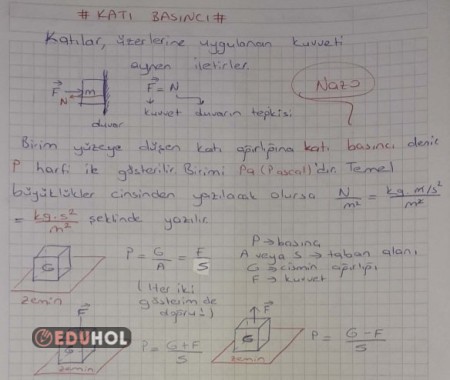 # KATI BASINCI #
Katılar, üzerlerine uygulanan kuvveti
aynen iletirler.
F m N
F = N
kuvvet duvarın tepkisi
duvar
Naz
Birim yüzeye düşen katı ağırlığına katı basıncı denir
P harfi ile gösterilir. Birimi Pa (Pascal)'dır. Temel
büyüklükler cinsinden yazılacak olursa N/m² = kg.m/s²/m²
= kg.s²/m² şeklinde yazılır.
G
zemin
P = G/A = F/S
(Her iki
gösterim de
doğru!)
P → basınç
A veya S → taban alanı
G → cismin ağırlığı
F → kuvvet
F
G
zemin
P = G+F/S
F
G
zemin
P = G-F/S
EDUHOL